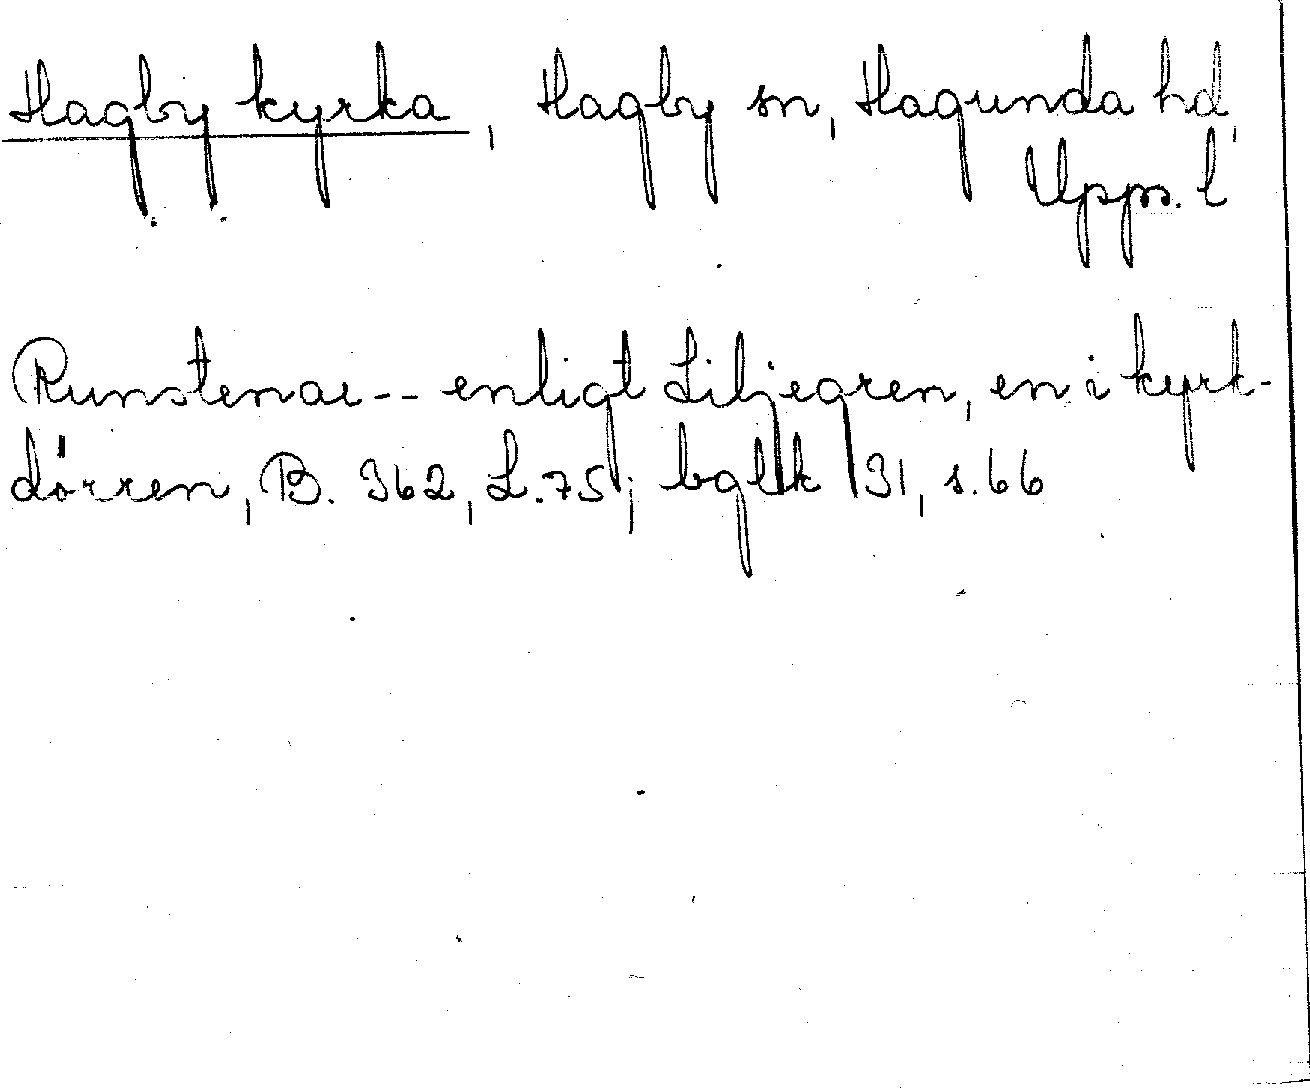 Hagby kyrka, Hagby sn, Hagunda hd,
Upps. l
Runstenar -- enligt Liljegren, en i kyrk-
dörren, B. 362, L. 75; bglk 131, s. 66